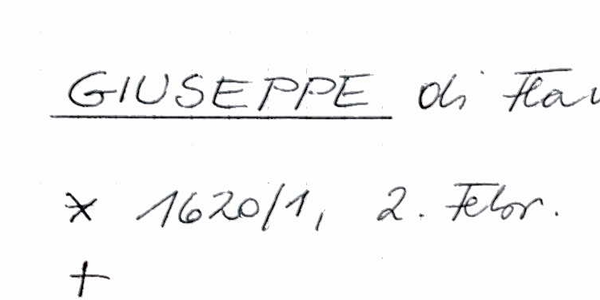 GIUSEPPE di Flav
* 1620/1, 2. Febr.
+